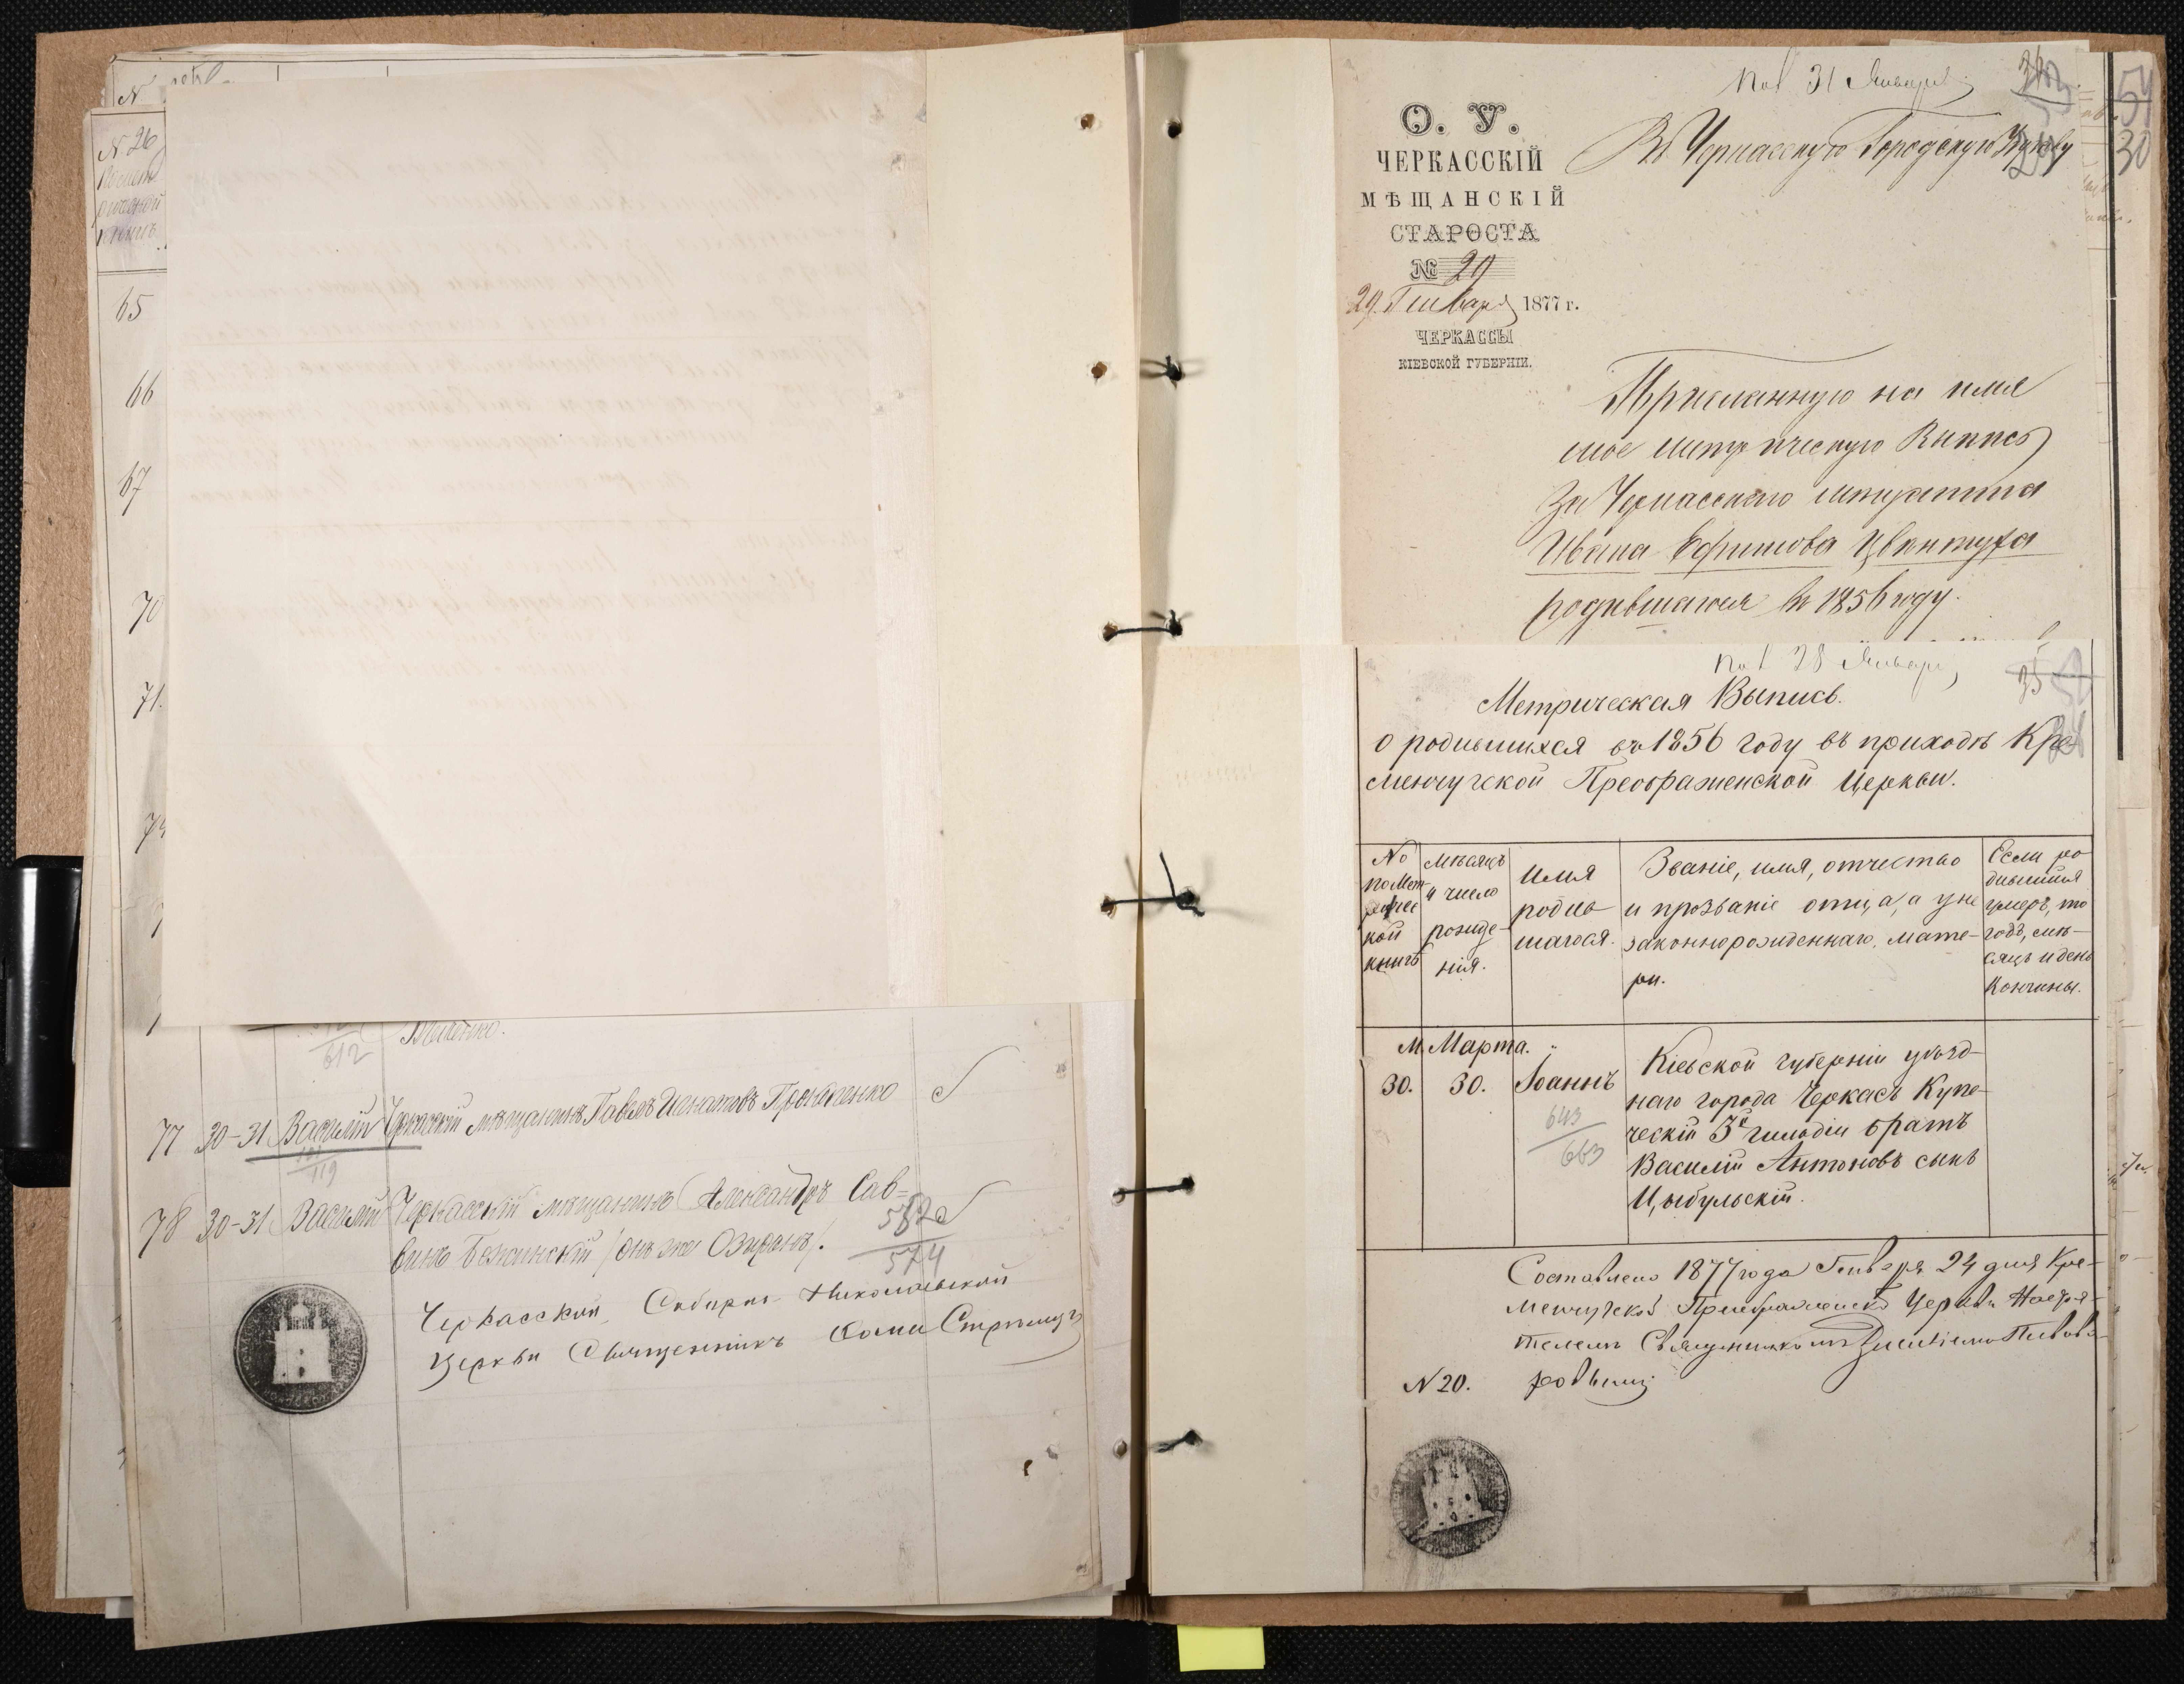 N 26
65
66
67
70
71.
612
77 30-31 Василій Черкасскій мѣщанинъ Павелъ Игнатовъ
119
78 30-31 Василій Черкасскій мѣщанинъ Александръ Сав-
винъ /онъ же Озиранъ/.
574
Черкасской Соборно-Николаевской
Церкви Священникъ
31 Января
О. У.
ЧЕРКАССКІЙ
МѢЩАНСКІЙ
СТАРОСТА
№ 29
29 Генваря 1877 г.
ЧЕРКАССЫ
КІЕВСКОЙ ГУБЕРНІИ.
Въ Черкасскую Городскую Управу
54
30
Присланную на имя
мое метрическую Выпись
за Черкасскаго мещанина
Ивана Ефимова
родившагося въ 1856 году.
28 Января
35
Метрическая Выпись.
о родившихся въ 1856 году въ приходѣ Кре-
менчугской Преображенской Церкви.
No по Метричес кой книгѣ
мѣсяцъ и число рожде- нія.
имя родив- шагося.
Званіе, имя, отчество и прозваніе отца, а у не законнорожденнаго, мате- ри.
Если ро- дившійся умеръ, то годъ, мѣ- сяцъ и день кончины.
М. Марта.
30. 30. Іоаннъ
643
663
Кіевской губерніи уѣзд-
наго города Черкасъ Купе-
ческій 3й гильдіи братъ
Василій Антоновъ сынъ
Цыбульскій.
Составлено 1877 года Генваря 24 дня Кре-
менчугской Преображенской Церкви Настоя-
телемъ Священникомъ
N 20.